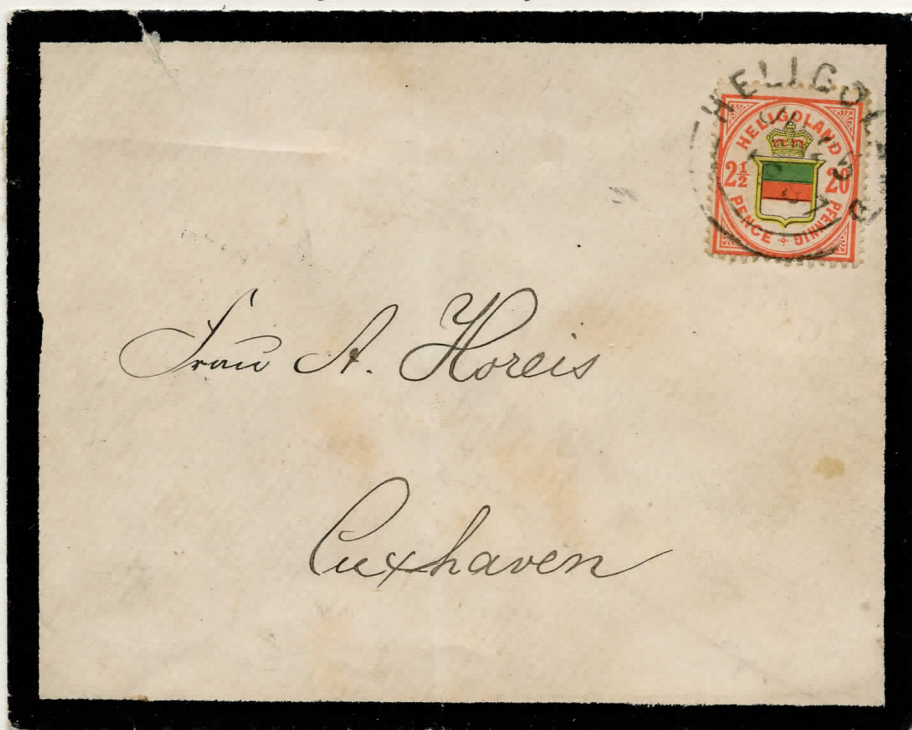 HELIGOLAND
HELIGOLAND
2½ 20
PENCE PFENNIG
Frau A. Horeis
Cuxhaven